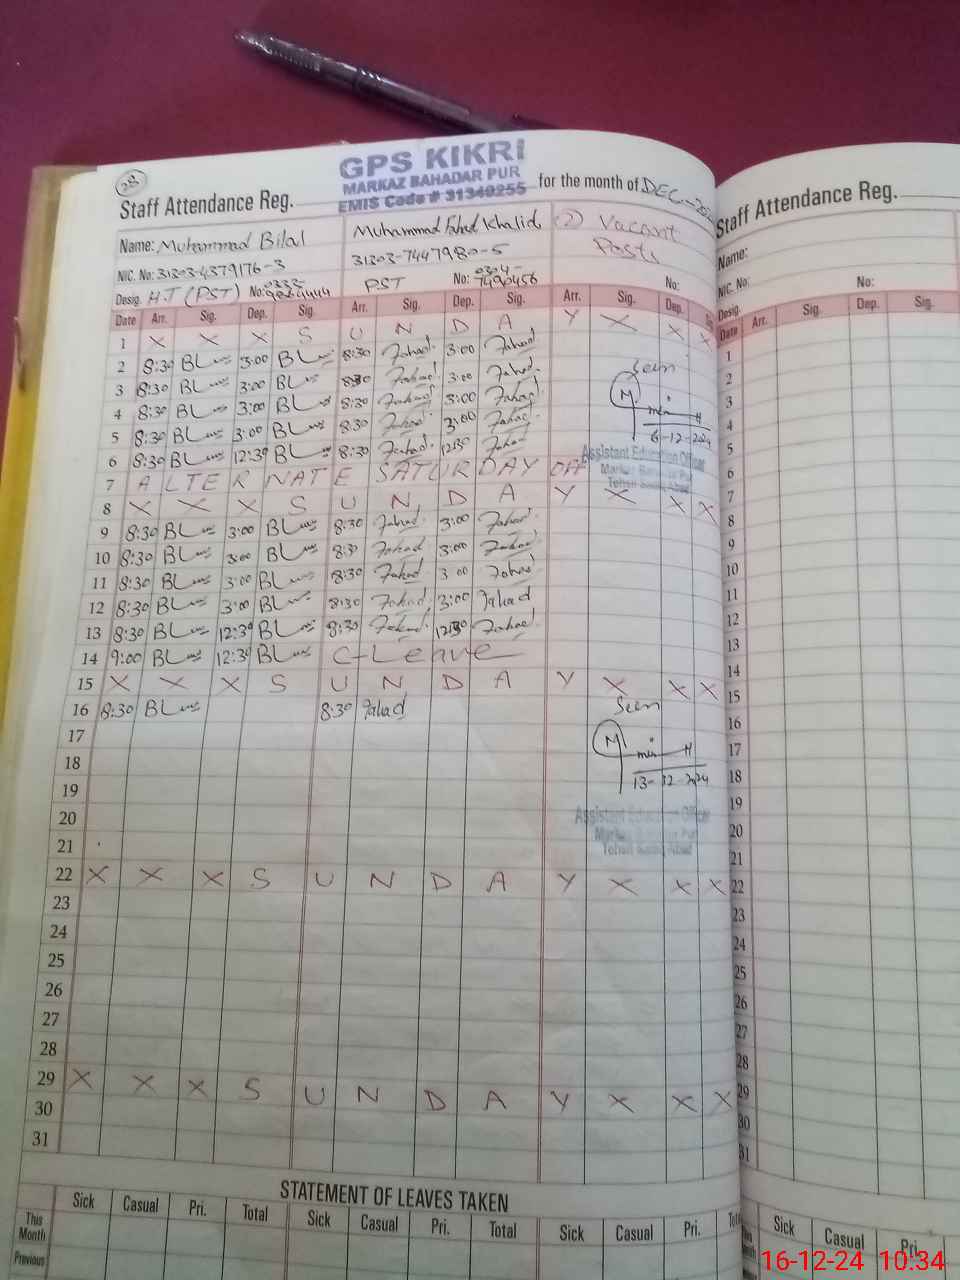 28
GPS KIKRI
MARKAZ BAHADAR PUR
EMIS Code # 31340255
Staff Attendance Reg. for the month of DEC-
Name: Muhammad Bilal Muhammad Fahad Khalid (2) Vacant
Posts
NIC. No: 31303-4379176-3 31303-7447980-5
Desig. H.T (PST) No: 0333- PST No: 0304-7490456 No:
Date Arr. Sig. Dep. Sig. Arr. Sig. Dep. Sig. Arr. Sig. Dep. Sig.
1 X X X S U N D A Y X X X
2 8:30 BL 3:00 BL 8:30 Fahad 3:00 Fahad
3 8:30 BL 3:00 BL 8:30 Fahad 3:00 Fahad
4 8:30 BL 3:00 BL 8:30 Fahad 3:00 Fahad
5 8:30 BL 3:00 BL 8:30 Fahad 3:00 Fahad
6 8:30 BL 12:30 BL 8:30 Fahad 12:30 Fahad
Seen
6-12-2024
Assistant Education Officer
Markaz Bahadar Pur
7 ALTERNATE SATURDAY OFF
8 X X X S U N D A Y X X X
9 8:30 BL 3:00 BL 8:30 Fahad 3:00 Fahad
10 8:30 BL 3:00 BL 8:30 Fahad 3:00 Fahad
11 8:30 BL 3:00 BL 8:30 Fahad 3:00 Fahad
12 8:30 BL 3:00 BL 8:30 Fahad 3:00 Fahad
13 8:30 BL 12:30 BL 8:30 Fahad 12:30 Fahad
14 9:00 BL 12:30 BL C-Leave
15 X X X S U N D A Y X X X
16 8:30 BL 8:30 Fahad
Seen
13-12-2024
Assistant Education Officer
Markaz Bahadar Pur
17
18
19
20
21
22 X X X S U N D A Y X X X
23
24
25
26
27
28
29 X X X S U N D A Y X X X
30
31
STATEMENT OF LEAVES TAKEN
Sick Casual Pri. Total Sick Casual Pri. Total Sick Casual Pri. Total
This Month
Previous
Staff Attendance Reg.
Name:
NIC. No: No:
Desig.
Date Arr. Sig. Dep. Sig.
1
2
3
4
5
6
7
8
9
10
11
12
13
14
15
16
17
18
19
20
21
22
23
24
25
26
27
28
29
30
31
Sick Casual Pri.
16-12-24 10:34